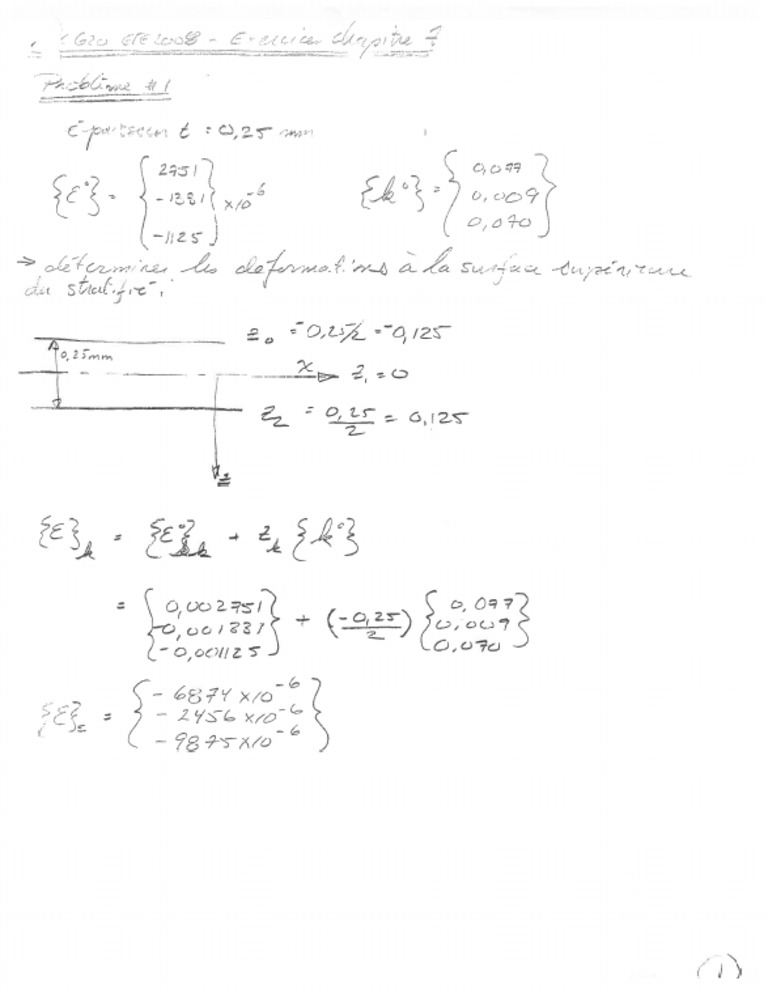 G20 ETE 2008 - Exercices chapitre 7
Problème #1
Epaisseur t = 0,25 mm
{ε°} = {2751 -1331 -1125} x10⁻⁶ {k°} = {0,077 0,009 0,070}
→ déterminer les déformations à la surface supérieure
du stratifié.
z₀ = -0,25/2 = -0,125
0,25mm
x z₁ = 0
z₂ = 0,25/2 = 0,125
z
{ε}ₖ = {ε°}ₖ + zₖ {k°}
= {0,002751 -0,001331 -0,001125} + (-0,25/2) {0,077 0,009 0,070}
{ε} = {-6874 x10⁻⁶ -2456 x10⁻⁶ -9875 x10⁻⁶}
1